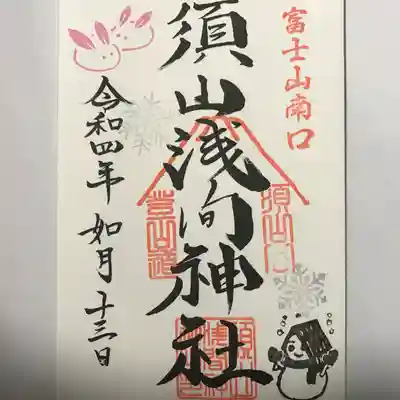 富士山南口
須山浅间神社
須山口
登山道
令和四年 如月十三日